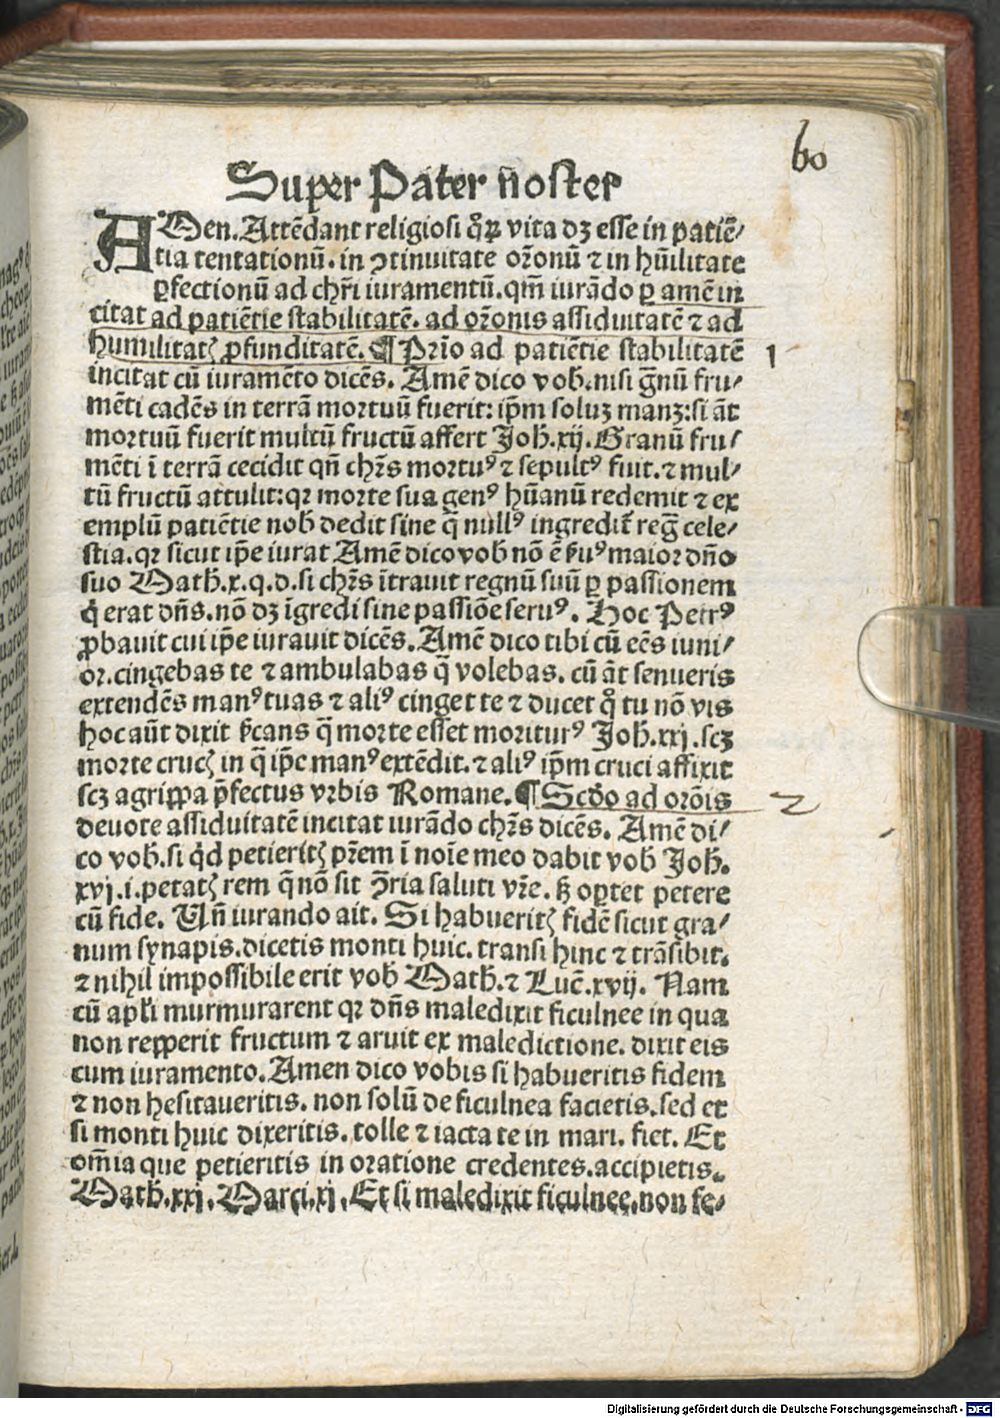 60
Super Pater n̄oster
AMen. Attēdant religiosi q̊ꝝ vita dꝫ esse in patiē⸗
tia tentationū. in ↄtinuitate or̄onū ⁊ in hūilitate
ꝑfectionū ad chr̄i iuramentū. qm̄ iurādo ꝑ amē in
citat ad patiētie stabilitatē. ad or̄onis assiduitatē ⁊ ad
humilitatꝭ ꝓfunditatē. ¶ Prīo ad patiētie stabilitatē
1
incitat cū iuramēto dicēs. Amē dico vob̄. nisi ḡnū fru⸗
mēti cadēs in terrā mortuū fuerit: ip̄m soluꝫ manꝫ: si āt
mortuū fuerit multū fructū affert Joh̄. xij. Granū fru⸗
mēti ī terrā cecidit qn̄ chr̄s mortuꝰ ⁊ sepultꝰ fuit. ⁊ mul⸗
tū fructū attulit: qꝛ morte sua genꝰ hūanū redemit ⁊ ex
emplū patiētie nob̄ dedit sine q̄ nullꝰ ingredit᷑ reḡ cele⸗
stia. qꝛ sicut ip̄e iurat Amē dico vob̄ nō ē ẜuꝰ maior dn̄o
suo Math̄. x. q. d. si chr̄s ītrauit regnū suū ꝑ passionem
q̇ erat dn̄s. nō dꝫ īgredi sine passiōe seruꝰ. Hoc Petrꝰ
ꝓbauit cui ip̄e iurauit dicēs. Amē dico tibi cū eēs iuni⸗
or. cingebas te ⁊ ambulabas q̄ volebas. cū āt senueris
extendēs manꝰ tuas ⁊ aliꝰ cinget te ⁊ ducet q̊ tu nō vis
hoc aūt dixit ẜcans q̄ morte esset moriturꝰ Joh̄. xxj. scꝫ
morte crucꝭ in q̄ ip̄e manꝰ extēdit. ⁊ aliꝰ ip̄m cruci affixit
scꝫ agrippa p̄fectus vrbis Romane. ¶ Scd̄o ad orōis
2
deuote assiduitatē incitat iurādo chr̄s dicēs. Amē di⸗
co vob̄. si q̇d petieritꝭ pr̄em ī noīe meo dabit vob̄ Joh̄.
xvj. i. petatꝭ rem q̄ nō sit ↄ̄ria saluti vr̄e. ꝫ oꝑtet petere
cū fide. Un̄ iurando ait. Si habueritꝭ fidē sicut gra⸗
num synapis. dicetis monti huic. transi hinc ⁊ trāsibit.
⁊ nihil impossibile erit vob̄ Math̄. ⁊ Luc̄. xvij. Nam
cū apl̄i murmurarent qꝛ dn̄s maledixit ficulnee in qua
non repperit fructum ⁊ aruit ex maledictione. dixit eis
cum iuramento. Amen dico vobis si habueritis fidem
⁊ non hesitaueritis. non solū de ficulnea facietis. sed et
si monti huic dixeritis. tolle ⁊ iacta te in mari. fiet. Et
om̄ia que petieritis in oratione credentes. accipietis.
Math̄. xxj. Marci. xj. Et si maledixit ficulnee. non fe⸗
Digitalisierung gefördert durch die Deutsche Forschungsgemeinschaft - DFG